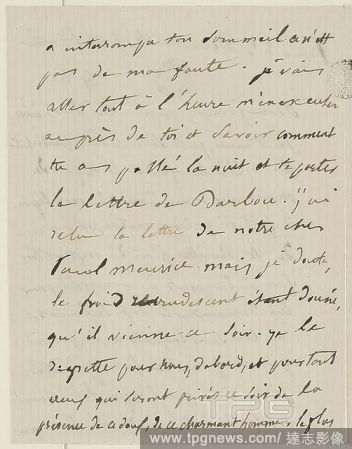 a interrompu ton sommeil ce n'est
pas de ma faute. j'vais
aller tout à l'heure m'en excuser
auprès de toi et savoir comment
tu as passé la nuit et te porter
la lettre de Barbou. j'ai
relu la lettre de notre cher
Paul meurice mais je doute,
le froid étant donné,
qu'il vienne ce soir. je le
regrette pour nous, d'abord, et pour tous
ceux qui seront privés ce soir de la
présence de ce doux, de ce charmant homme, le plus
TPG
www.tpgnews.com / 達志影像